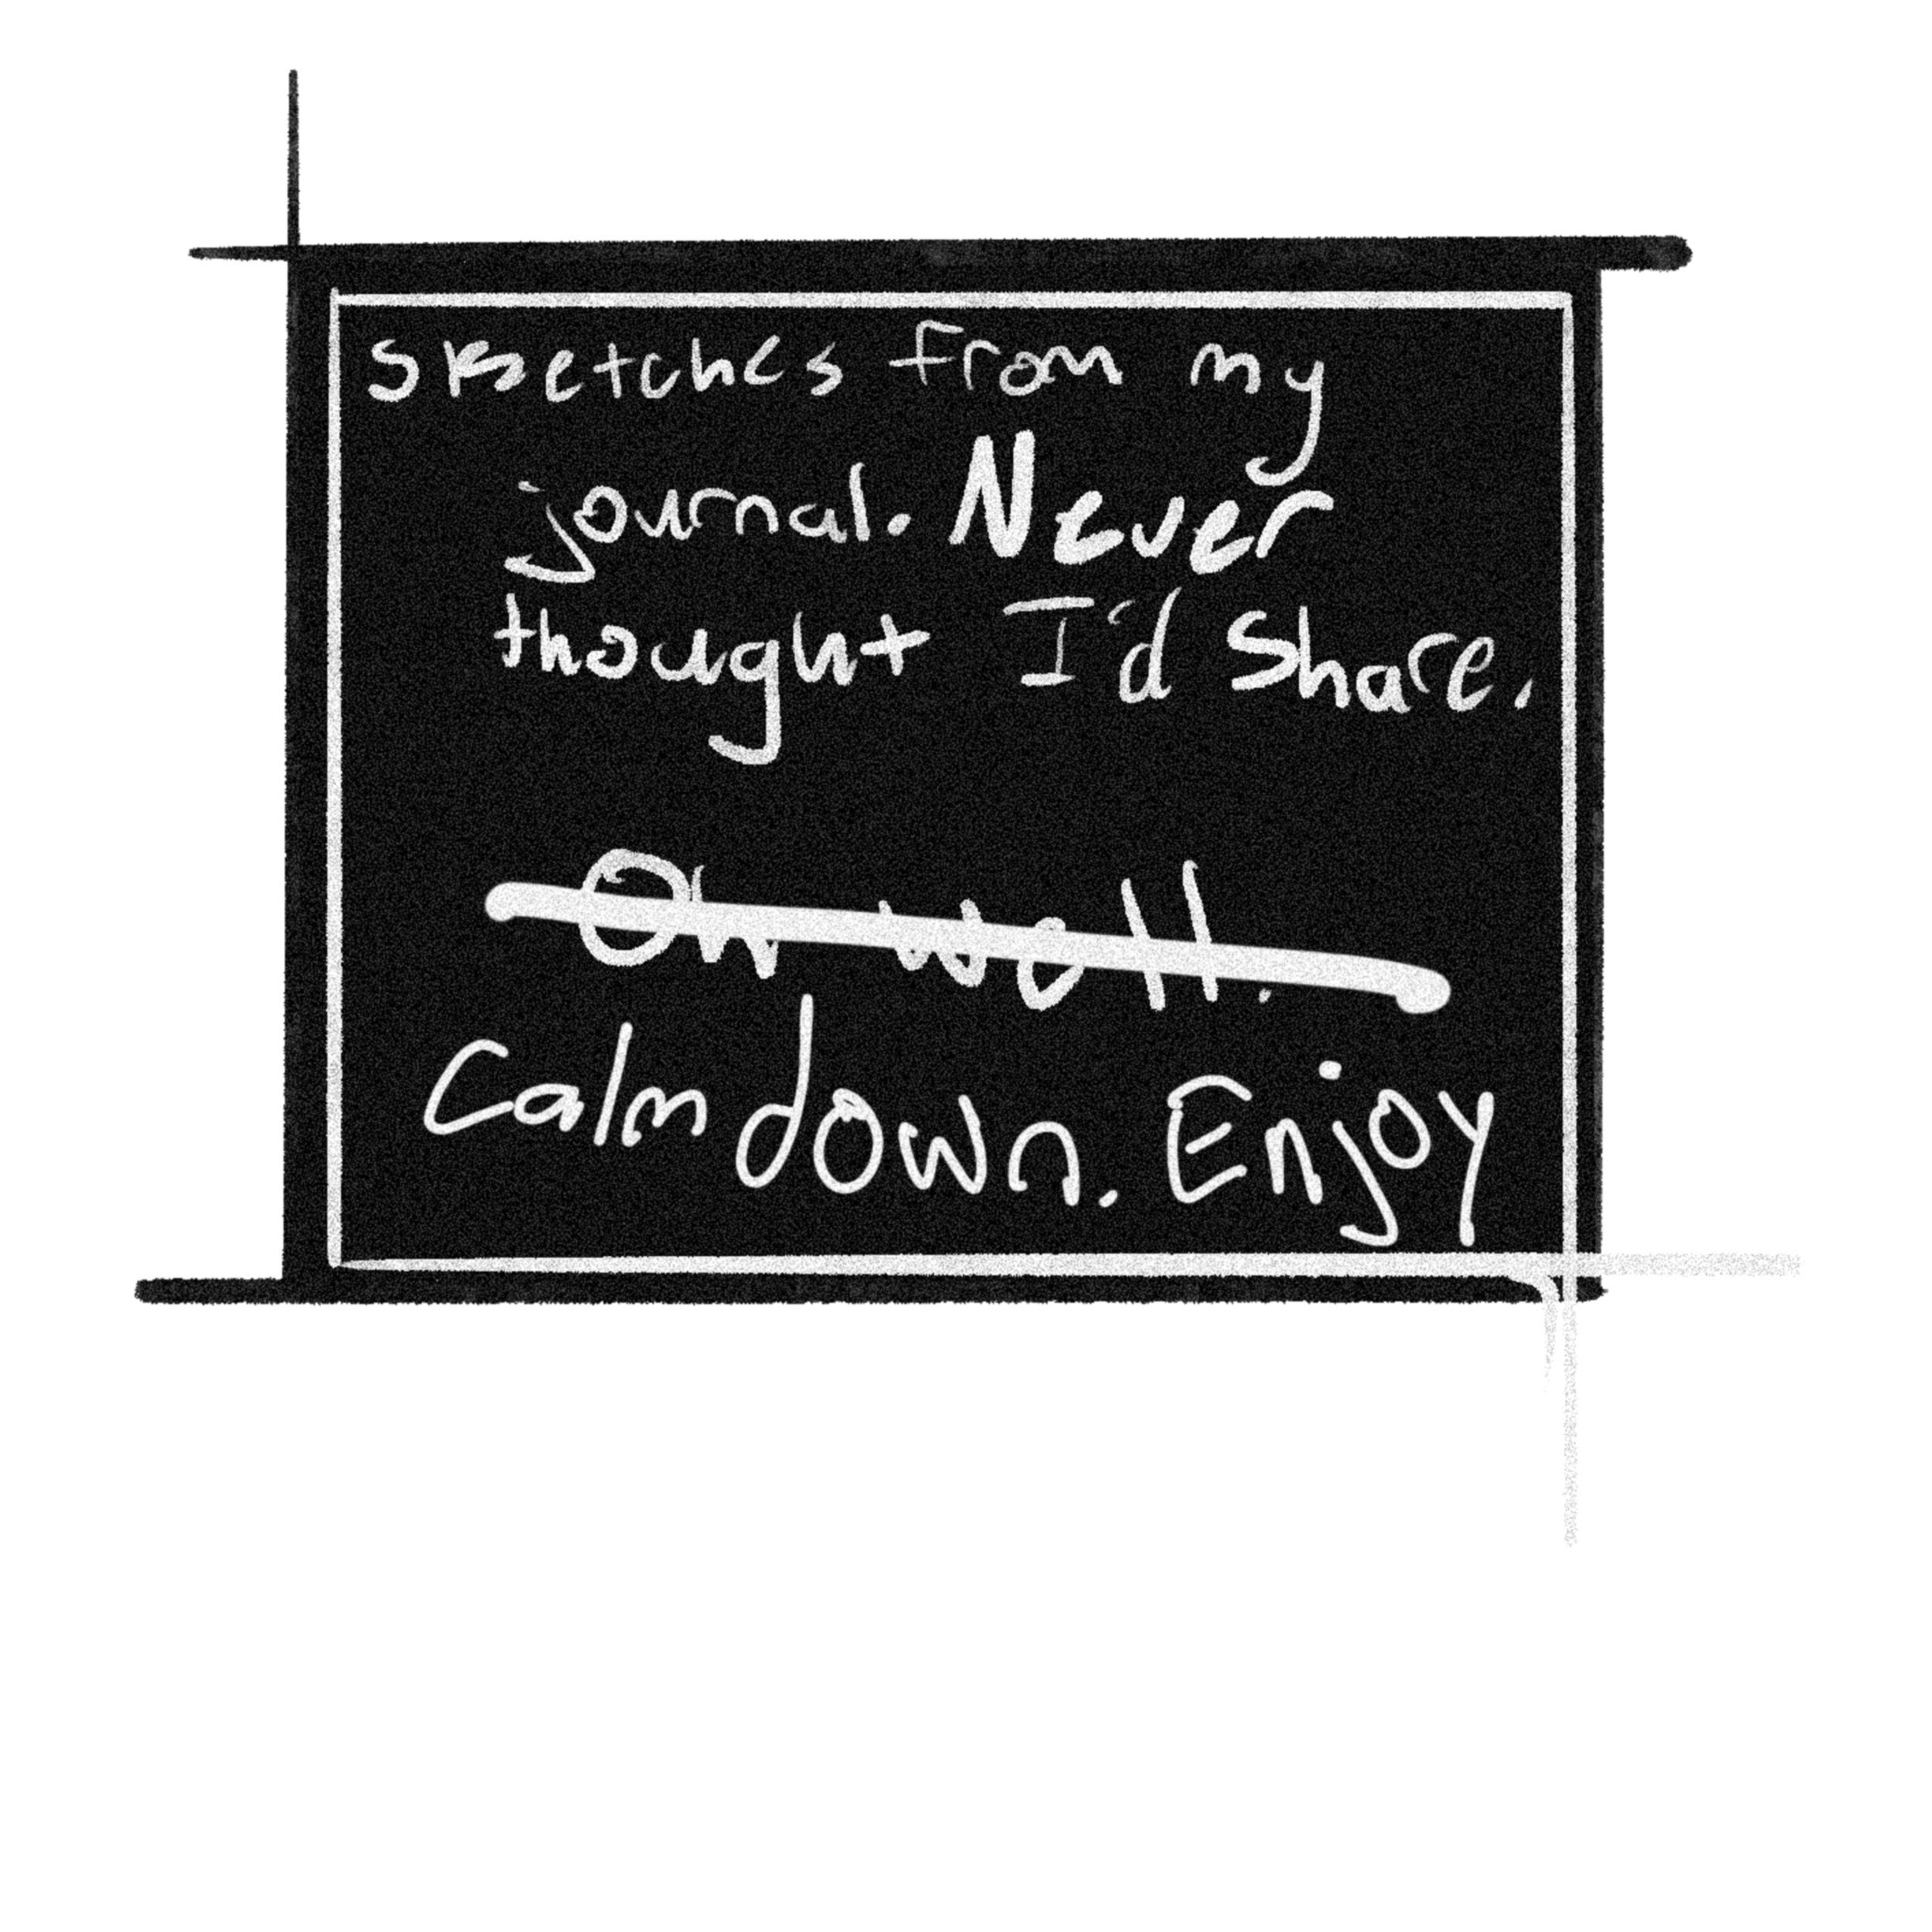 Sketches from my
journal. Never
thought I'd Share.
Oh well.
Calm down. Enjoy